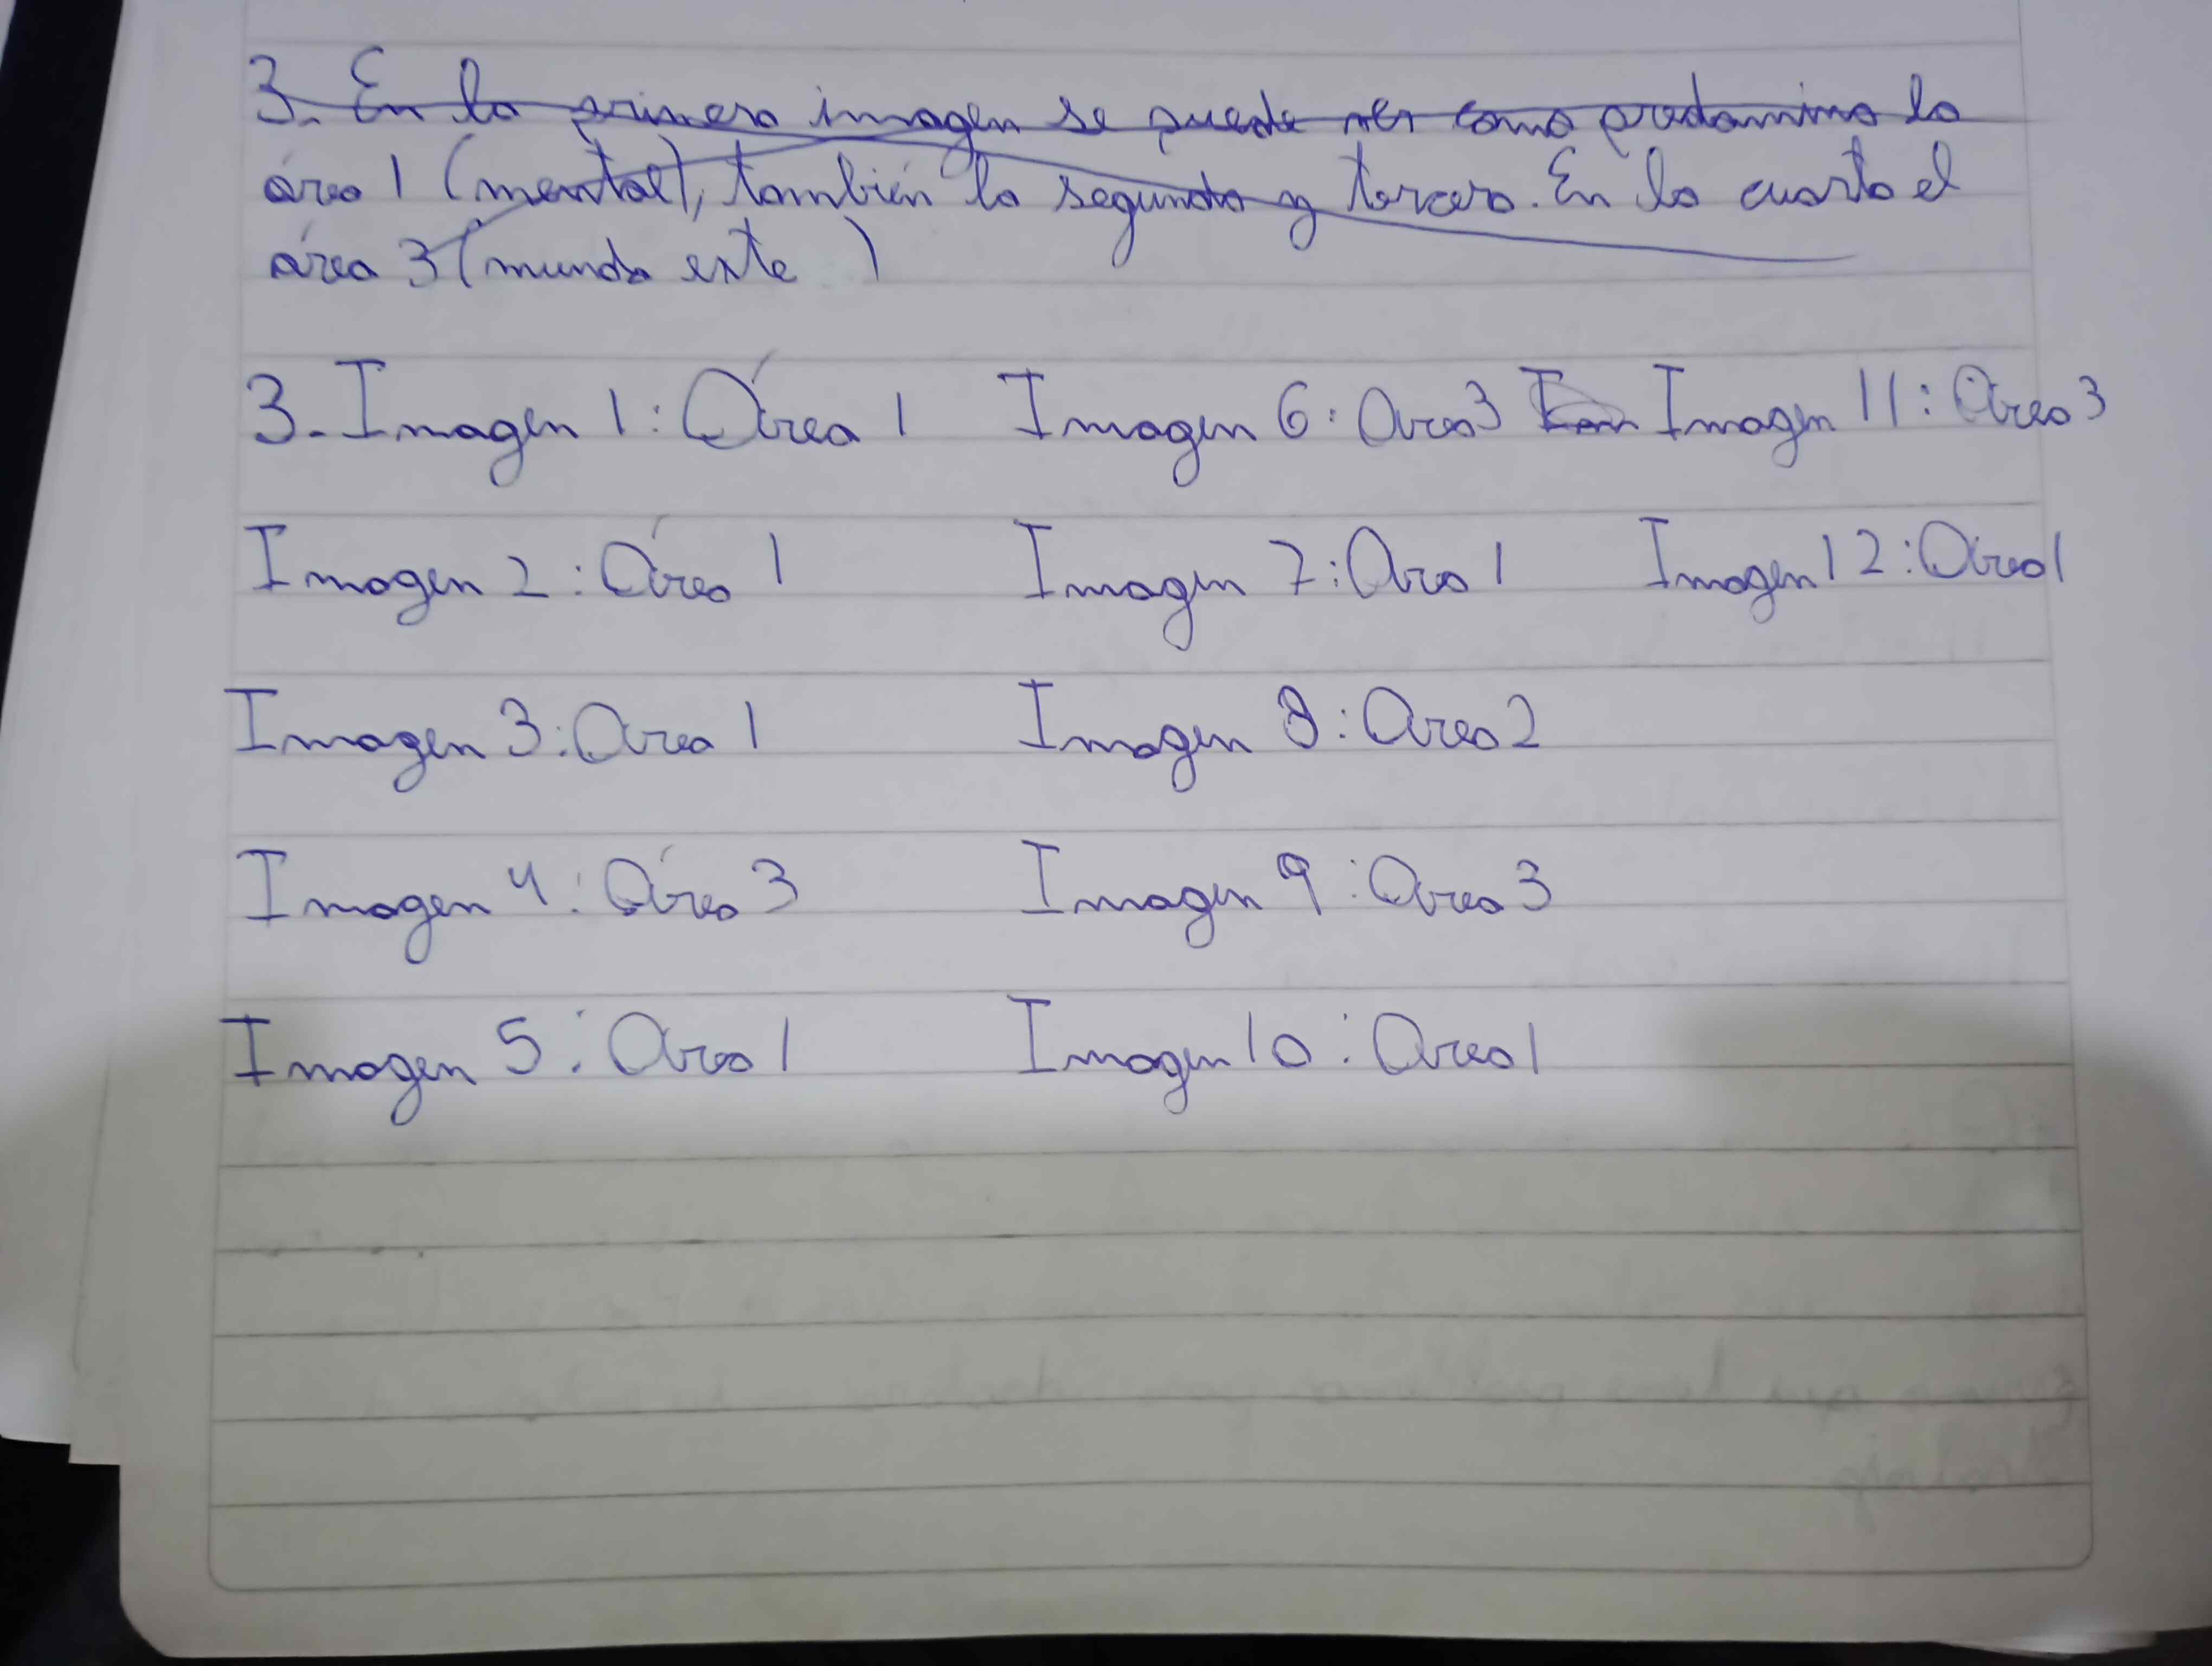 3. En la primera imagen se puede ver como predomina la
área 1 (mental), también la segunda y tercera. En la cuarta el
área 3 (mundo exte )
3. Imagen 1: Área 1 Imagen 6: Area 3 Imagen 11: Area 3
Imagen 2: Área 1 Imagen 7: Area 1 Imagen 12: Area 1
Imagen 3: Area 1 Imagen 8: Area 2
Imagen 4: Área 3 Imagen 9: Area 3
Imagen 5: Area 1 Imagen 10: Area 1